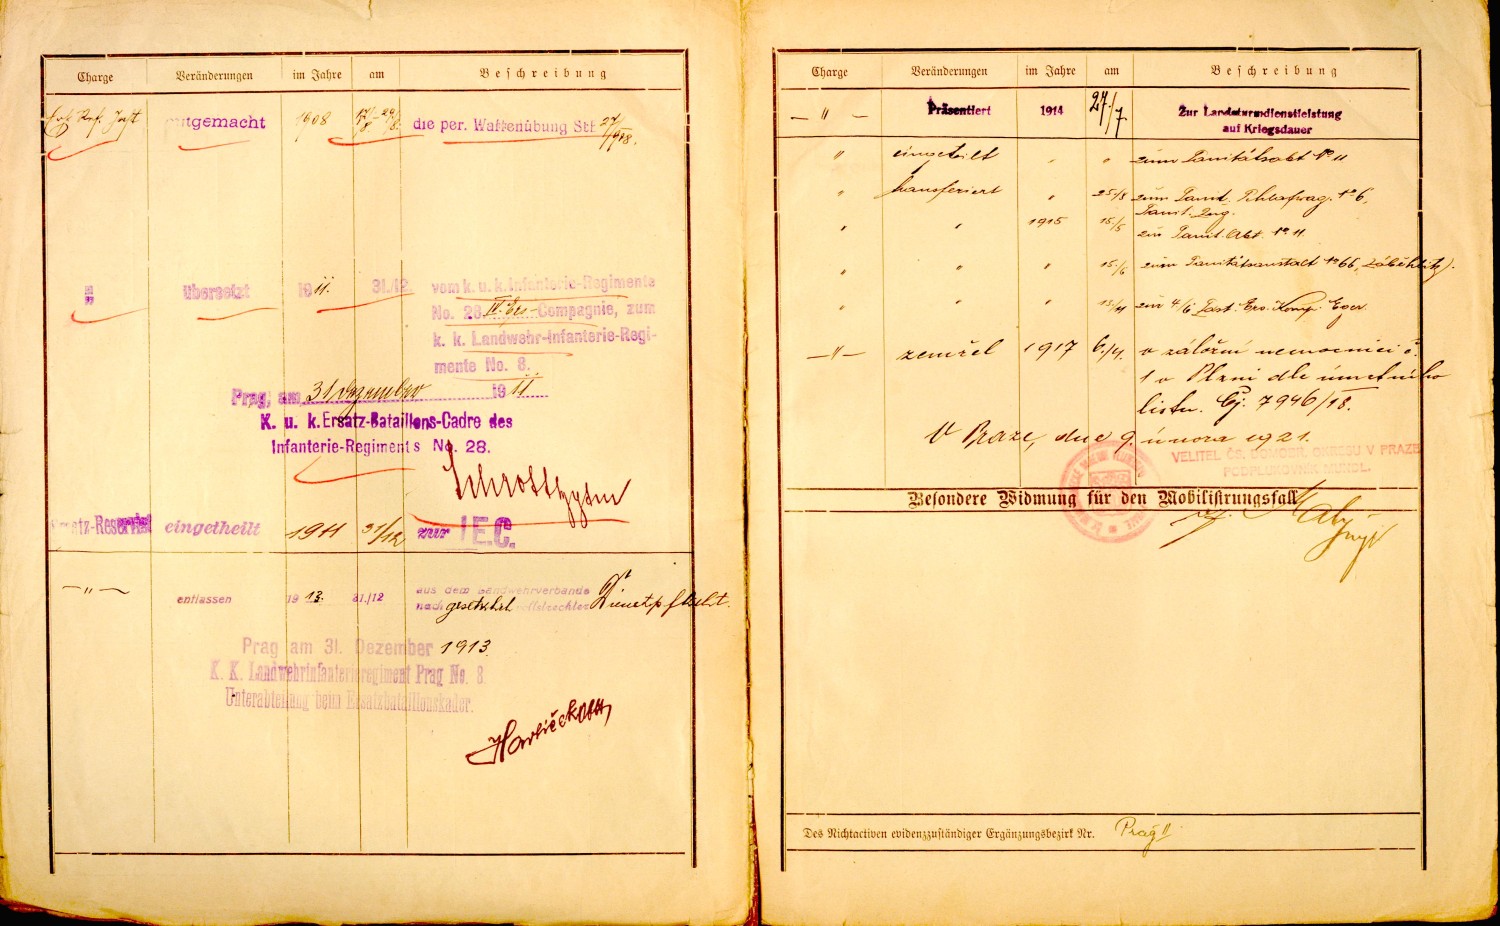 Charge Veränderungen im Jahre am Beschreibung
mitgemacht 1908 17/8 - 29/8 die per. Waffenübung Stb 27/
" übersetzt 1911. 31./12. vom k. u. k. Infanterie-Regimente
No. 28 IV. Ers-Compagnie, zum
k. k. Landwehr-Infanterie-Regi-
mente No. 8.
Prag, am 31 Dezember 1911
K. u. k. Ersatz-Bataillons-Cadre des
Infanterie-Regiments No. 28.
Ersatz-Reservist eingetheilt 1911 31/12 zur E.C.
— " — entlassen 1913. 31./12 aus dem Landwehrverbande
nach gesetzl. vollstreckter Dienstpflicht.
Prag am 31. Dezember 1913
K. K. Landwehrinfanterieregiment Prag No. 8.
Unterabteilung beim Ersatzbataillonskader.
Charge Veränderungen im Jahre am Beschreibung
— " — Präsentiert 1914 27./7 Zur Landsturmdienstleistung
auf Kriegsdauer
" eingeteilt " " zum Sanitätsabt No 11
" transferiert " 25/8 zum Sanit. No 6,
Sanit. Zug.
" " 1915 15/5 zur Sanit. Abt. No 11.
" " " 15./6 zum Sanitätsanstalt No 66, Záběhlitz).
" " " 13/11 zur 4/6 Ers. Komp. Eger
— " — zemřel 1917 6./4. v záložní nemocnici č.
1 v Plzni dle úmrtního
listu. Čj. 7946/18.
V Praze, dne 9. února 1921.
VELITEL ČS. DOMOBR. OKRESU V PRAZE
PODPLUKOVNÍK MUNDL.
Besondere Widmung für den Mobilisirungsfall
Des Nichtactiven evidenzzuständiger Ergänzungsbezirk Nr. Prag II